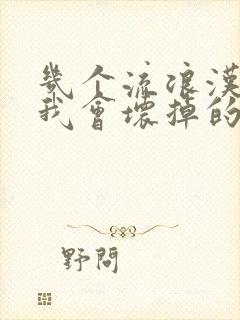 幾个流浪漢
我會壞掉的
野問